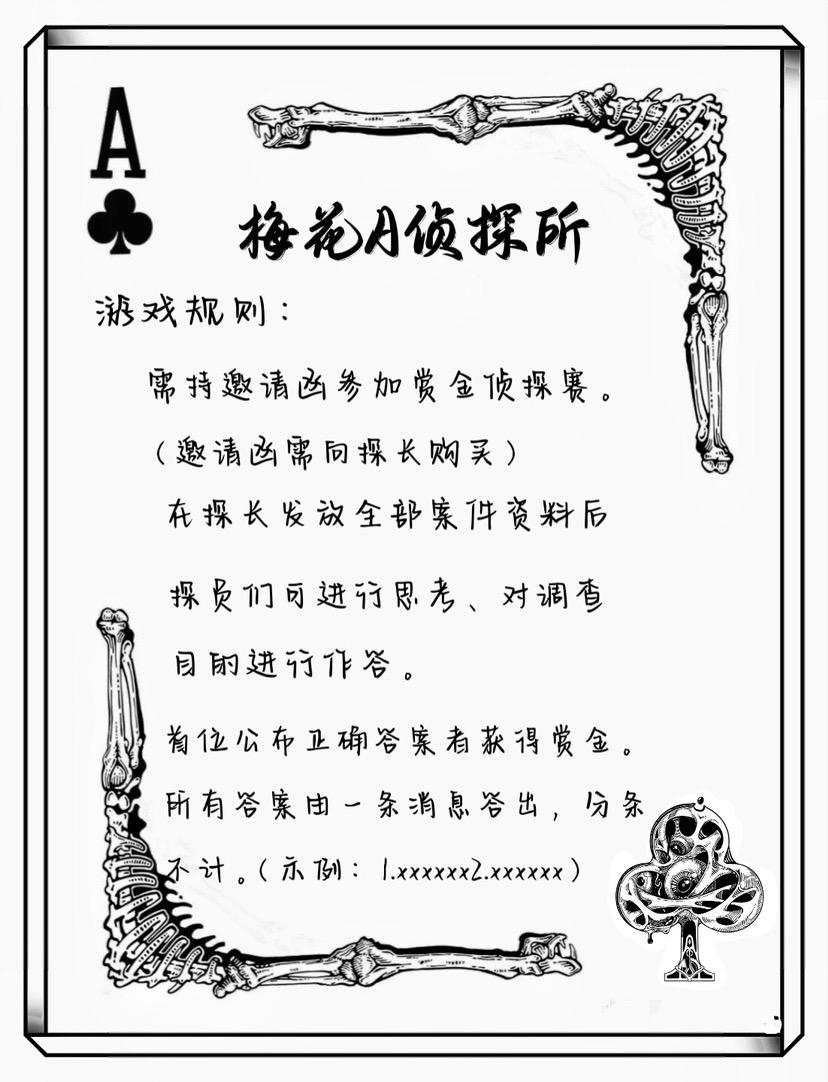 A
梅花A侦探所
游戏规则：
需持邀请函参加赏金侦探赛。
（邀请函需向探长购买）
在探长发放全部案件资料后
探员们可进行思考、对调查
目的进行作答。
首位公布正确答案者获得赏金。
所有答案由一条消息答出，分条
不计。（示例：1.xxxxxx2.xxxxxx）